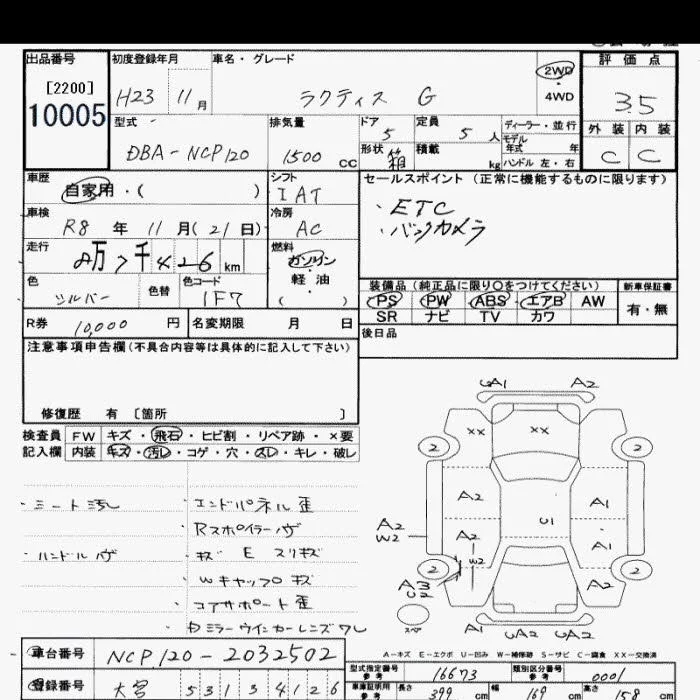 出品番号
[2200]
10005
初度登録年月
H23 11月
車名・グレード
ラクティス G
2WD
・
4WD
評価点
3.5
外装 内装
C C
型式
DBA-NCP120
排気量
1500 CC
ドア
5
定員
5 人
形状
箱
積載
kg
ディーラー・並行
モデル
年式 年
ハンドル 左・右
車歴
自家用・( )
シフト
IAT
車検
R8 年 11 月(21日)
冷房
AC
走行
万 千 426 km
燃料
ガソリン
・
軽油
( )
色
シルバー
色替
色コード
1F7
セールスポイント (正常に機能するものに限ります)
・ETC
・バックカメラ
装備品(純正品に限り○をつけてください)
PS PW ABS エアB AW
SR ナビ TV カワ
新車保証書
有・無
R券 10,000 円
名変期限 月 日
後日品
注意事項申告欄(不具合内容等は具体的に記入して下さい)
修復歴 有 [箇所 ]
検査員
記入欄
FW キズ・飛石・ヒビ割・リペア跡・×要
内装 キズ・汚レ・コゲ・穴・スレ・キレ・破レ
・シート汚レ
・ハンドルハゲ
・エンドパネル歪
・Rスポイラーハゲ
・キズ E スリキズ
・Wキャップキズ
・コアサポート歪
・Dミラーウインカーレンズワレ
A1 A2
XX XX
2 2
A2 A1
U1
A2
W2
A2 A1
W2
2 2
A3
U2
A2
スペア
A1 UA2 UA2
A-キズ E-エクボ U-凹み W-補修跡 S-サビ C-腐食 XX-交換済
車台番号 NCP120-2032502
登録番号 大宮 531 3 4126
型式指定番号
参考
16673
類別区分番号
参考
0001
車車証明用
参考
長さ 399 cm 幅 169 cm 高さ 158 cm